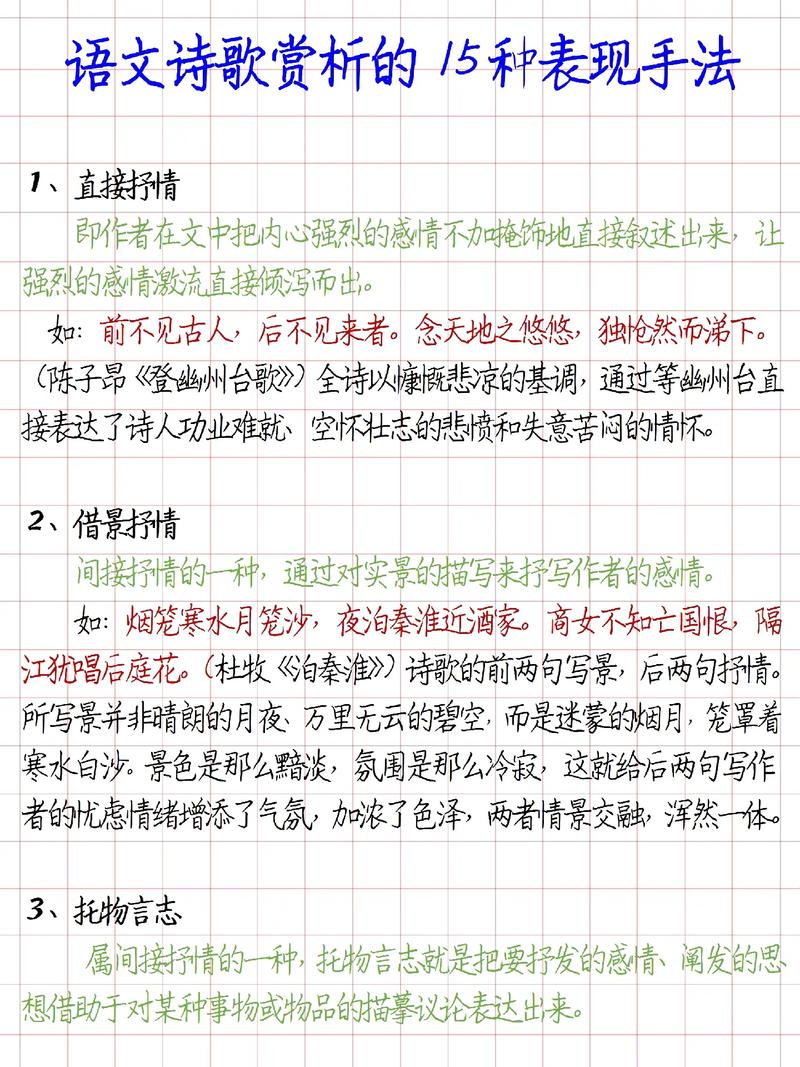 语文诗歌赏析的 15种表现手法
1、直接抒情
即作者在文中把内心强烈的感情不加掩饰地直接叙述出来，让
强烈的感情激流直接倾泻而出。
如：前不见古人，后不见来者。念天地之悠悠，独怆然而涕下。
（陈子昂《登幽州台歌》）全诗以慷慨悲凉的基调，通过等幽州台直
接表达了诗人功业难就、空怀壮志的悲愤和失意苦闷的情怀。
2、借景抒情
间接抒情的一种，通过对实景的描写来抒写作者的感情。
如：烟笼寒水月笼沙，夜泊秦淮近酒家。商女不知亡国恨，隔
江犹唱后庭花。（杜牧《泊秦淮》）诗歌的前两句写景，后两句抒情。
所写景并非晴朗的月夜、万里无云的碧空，而是迷蒙的烟月，笼罩着
寒水白沙。景色是那么黯淡，氛围是那么冷寂，这就给后两句写作
者的忧虑情绪增添了气氛，加浓了色泽，两者情景交融，浑然一体。
3、托物言志
属间接抒情的一种，托物言志就是把要抒发的感情、阐发的思
想借助于对某种事物或物品的描摹议论表达出来。